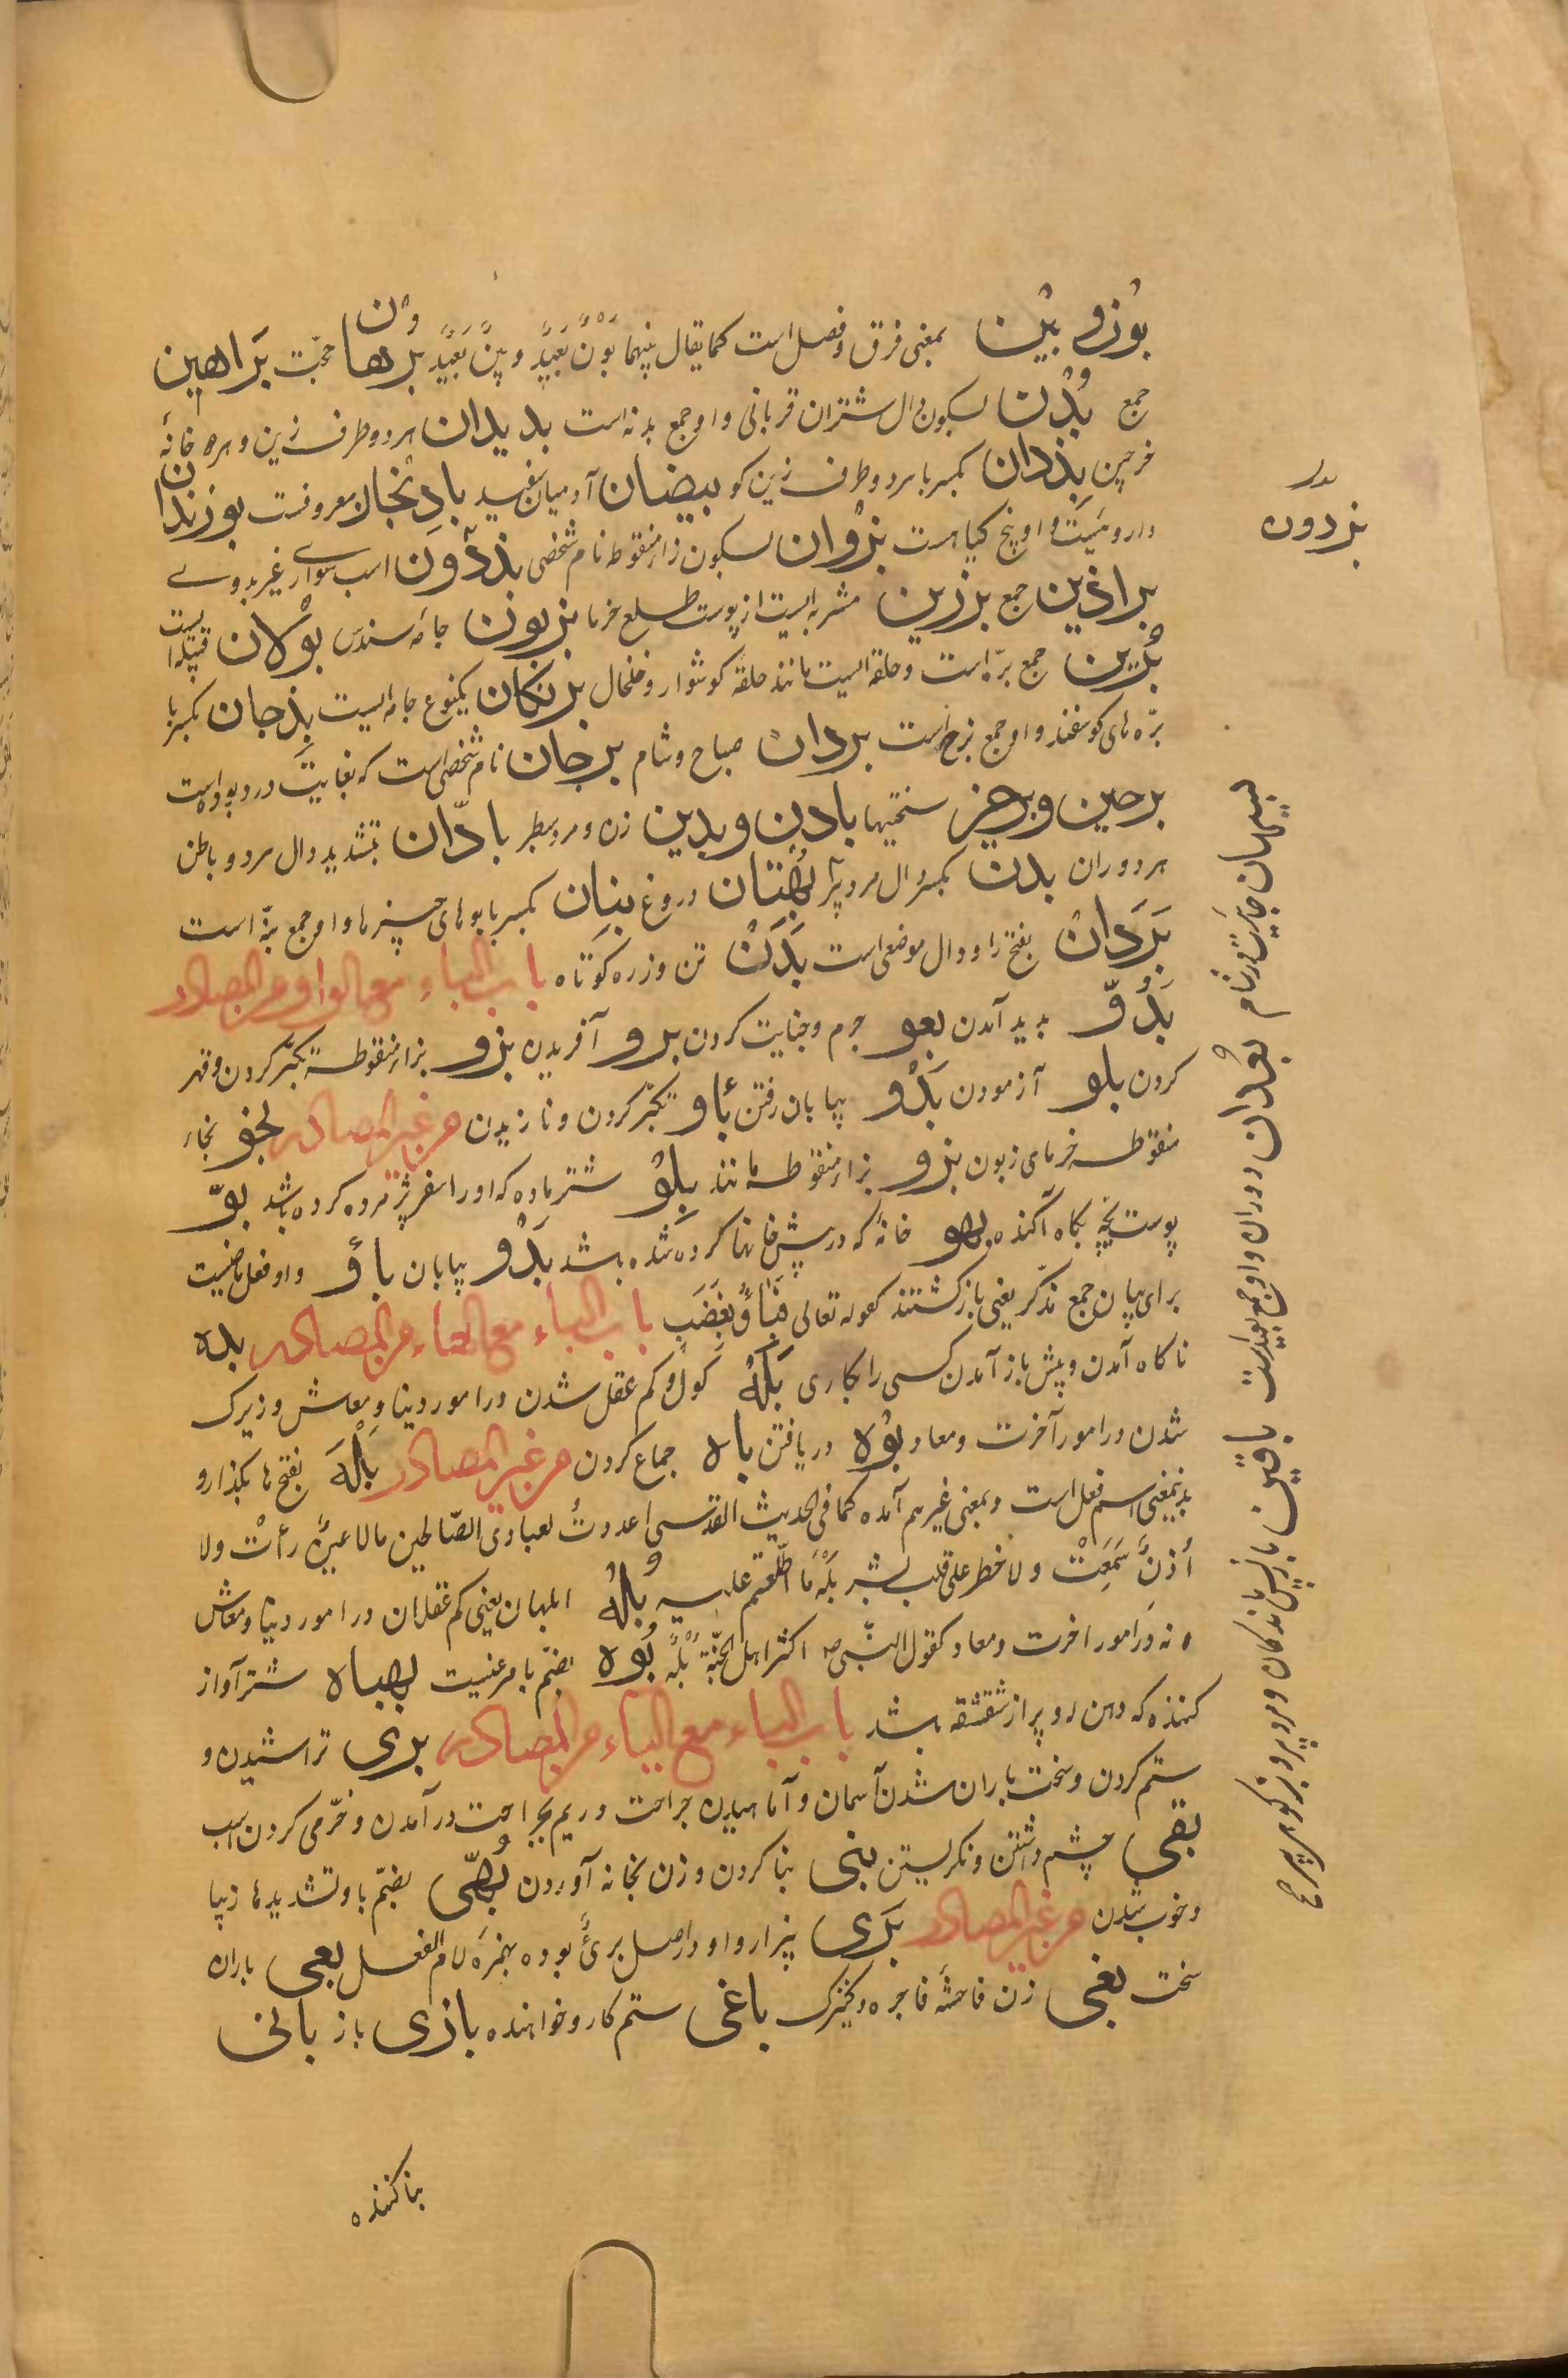 بُون و بَین بمعنی فرق و فصل است کما یقال بینهما بَوْنٌ بَعِیْدٌ و بینٌ بَعِیدٌ برهان حجّت بَراهین
جمع بُدُن بسکون دال شتران قربانی و او جمع بدنه است بدیدان هر دو طرف زین و هر دو خانهٔ
خرجین بِذدان بکسر با هر دو طرف زین کو بیضان آدمیان سفید بادِنْجان معروفست بوزندان
داروئیست و او بیخ کیاهست بزْوان بسکون زاء منقوطه نام شخصی بِذذَوْن اسب سواری غیر بدوی
براذین جمع برزین مشربه ایست از پوست طلع خرما بزیون جامه سندس بوْلان قبیله ایست
بُرِین جمع برّه است و حلقه ایست مانند حلقهٔ کوشوار و خلخال برنکان یکنوع جامه ایست بِذجان بکسر با
برّه های کوسفند و او جمع بذج است بردان صباح و شام برجان نام شخصی است که بغایت در دویده است
برحین و برحین سختیها بادِن و بدین زن و مرد سطبر بادّان بتشدید دال سرد و باطن
هر دو ران بدن بکسر دال مرد پیر بُهْتان دروغ بِنان بکسر با بوهای چیزها و او جمع بنّه است
بَرَدان بفتح را و دال موضعی است بَدَن تن و زره کوتاه باب الباء مع الواو من المصادر
بُدُوّ بدید آمدن بعو جرم و جنایت کردن برو آفریدن بزو بزاء منقوطه تکبّر کردن و قهر
کردن بلو آزمودن بَدْو بیابان رفتن بأو تکبّر کردن و نازیدن من غیر المصادر بخو بخاء
منقوطه خرمای زبون بزو بزاء منقوطه مانند بِلْو شتر ماده که او را سفر پژمرده کرده باشد بوّ
پوست بچّه بکاه آکنده بهو خانهٔ که در پیش خانها کرده شده باشد بَدْو بیابان باؤ و او فعل ماضیست
برای بیان جمع مذکّر یعنی باز کشتند کقوله تعالی فَبَاؤُ بِغَضَبٍ باب الباء مع الهاء من المصادر بده
ناکاه آمدن و پیش باز آمدن کسی را بکاری بَلَهْ کول و کم عقل شدن در امور دنیا و معاش و زیرک
شدن در امور آخرت و معاد بُوْه دریافتن باه جماع کردن من غیر المصادر بَلْهَ بفتح ها بکذار و
بدینمعنی اسم فعل است و بمعنی غیر هم آمده کما فی الحدیث القدسی اعددتُ لعبادی الصّالحین مالا عینٌ رأتْ ولا
أذنٌ سَمَعِتْ ولا خطر علی قلب بشر بَلْهَ مَا اطّلعتم علیه بُلْه ابلهان یعنی کم عقلان در امور دنیا و معاش
نه در امور اخرت و معاد کقول النّبی ص اکثر اهل الجنّة بُلْهٌ بُوْه بضمّ با مرغیست بهباه شتر آواز
کننده که دهن او پر از شقشقه باشد باب الباء مع الیاء من المصادر بری تراشیدن و
ستم کردن و سخت باران شدن آسمان و آماهیدن جراحت و ریم بجراحت در آمدن و خرّمی کردن اسب
بقی چشم داشتن و نکریستن بنی بنا کردن و زن بخانه آوردن بُهیّ بضمّ با و تشدید ها زیبا
و خوب شدن من غیر المصادر بَرَی بیزار و او در اصل بریٌٔ بوده بهمزهٔ لام الفعل بعی باران
سخت بغی زن فاحشهٔ فاجره و کنیزک باغی ستم کار و خواهنده بازی باز بانی
بنا کننده
بدل
بزدون
بیسان جائیست در شام بُعدان دوران و او جمع بعید است باقین باز پس ماندکان و مرد پیر و بزکوهی پیر